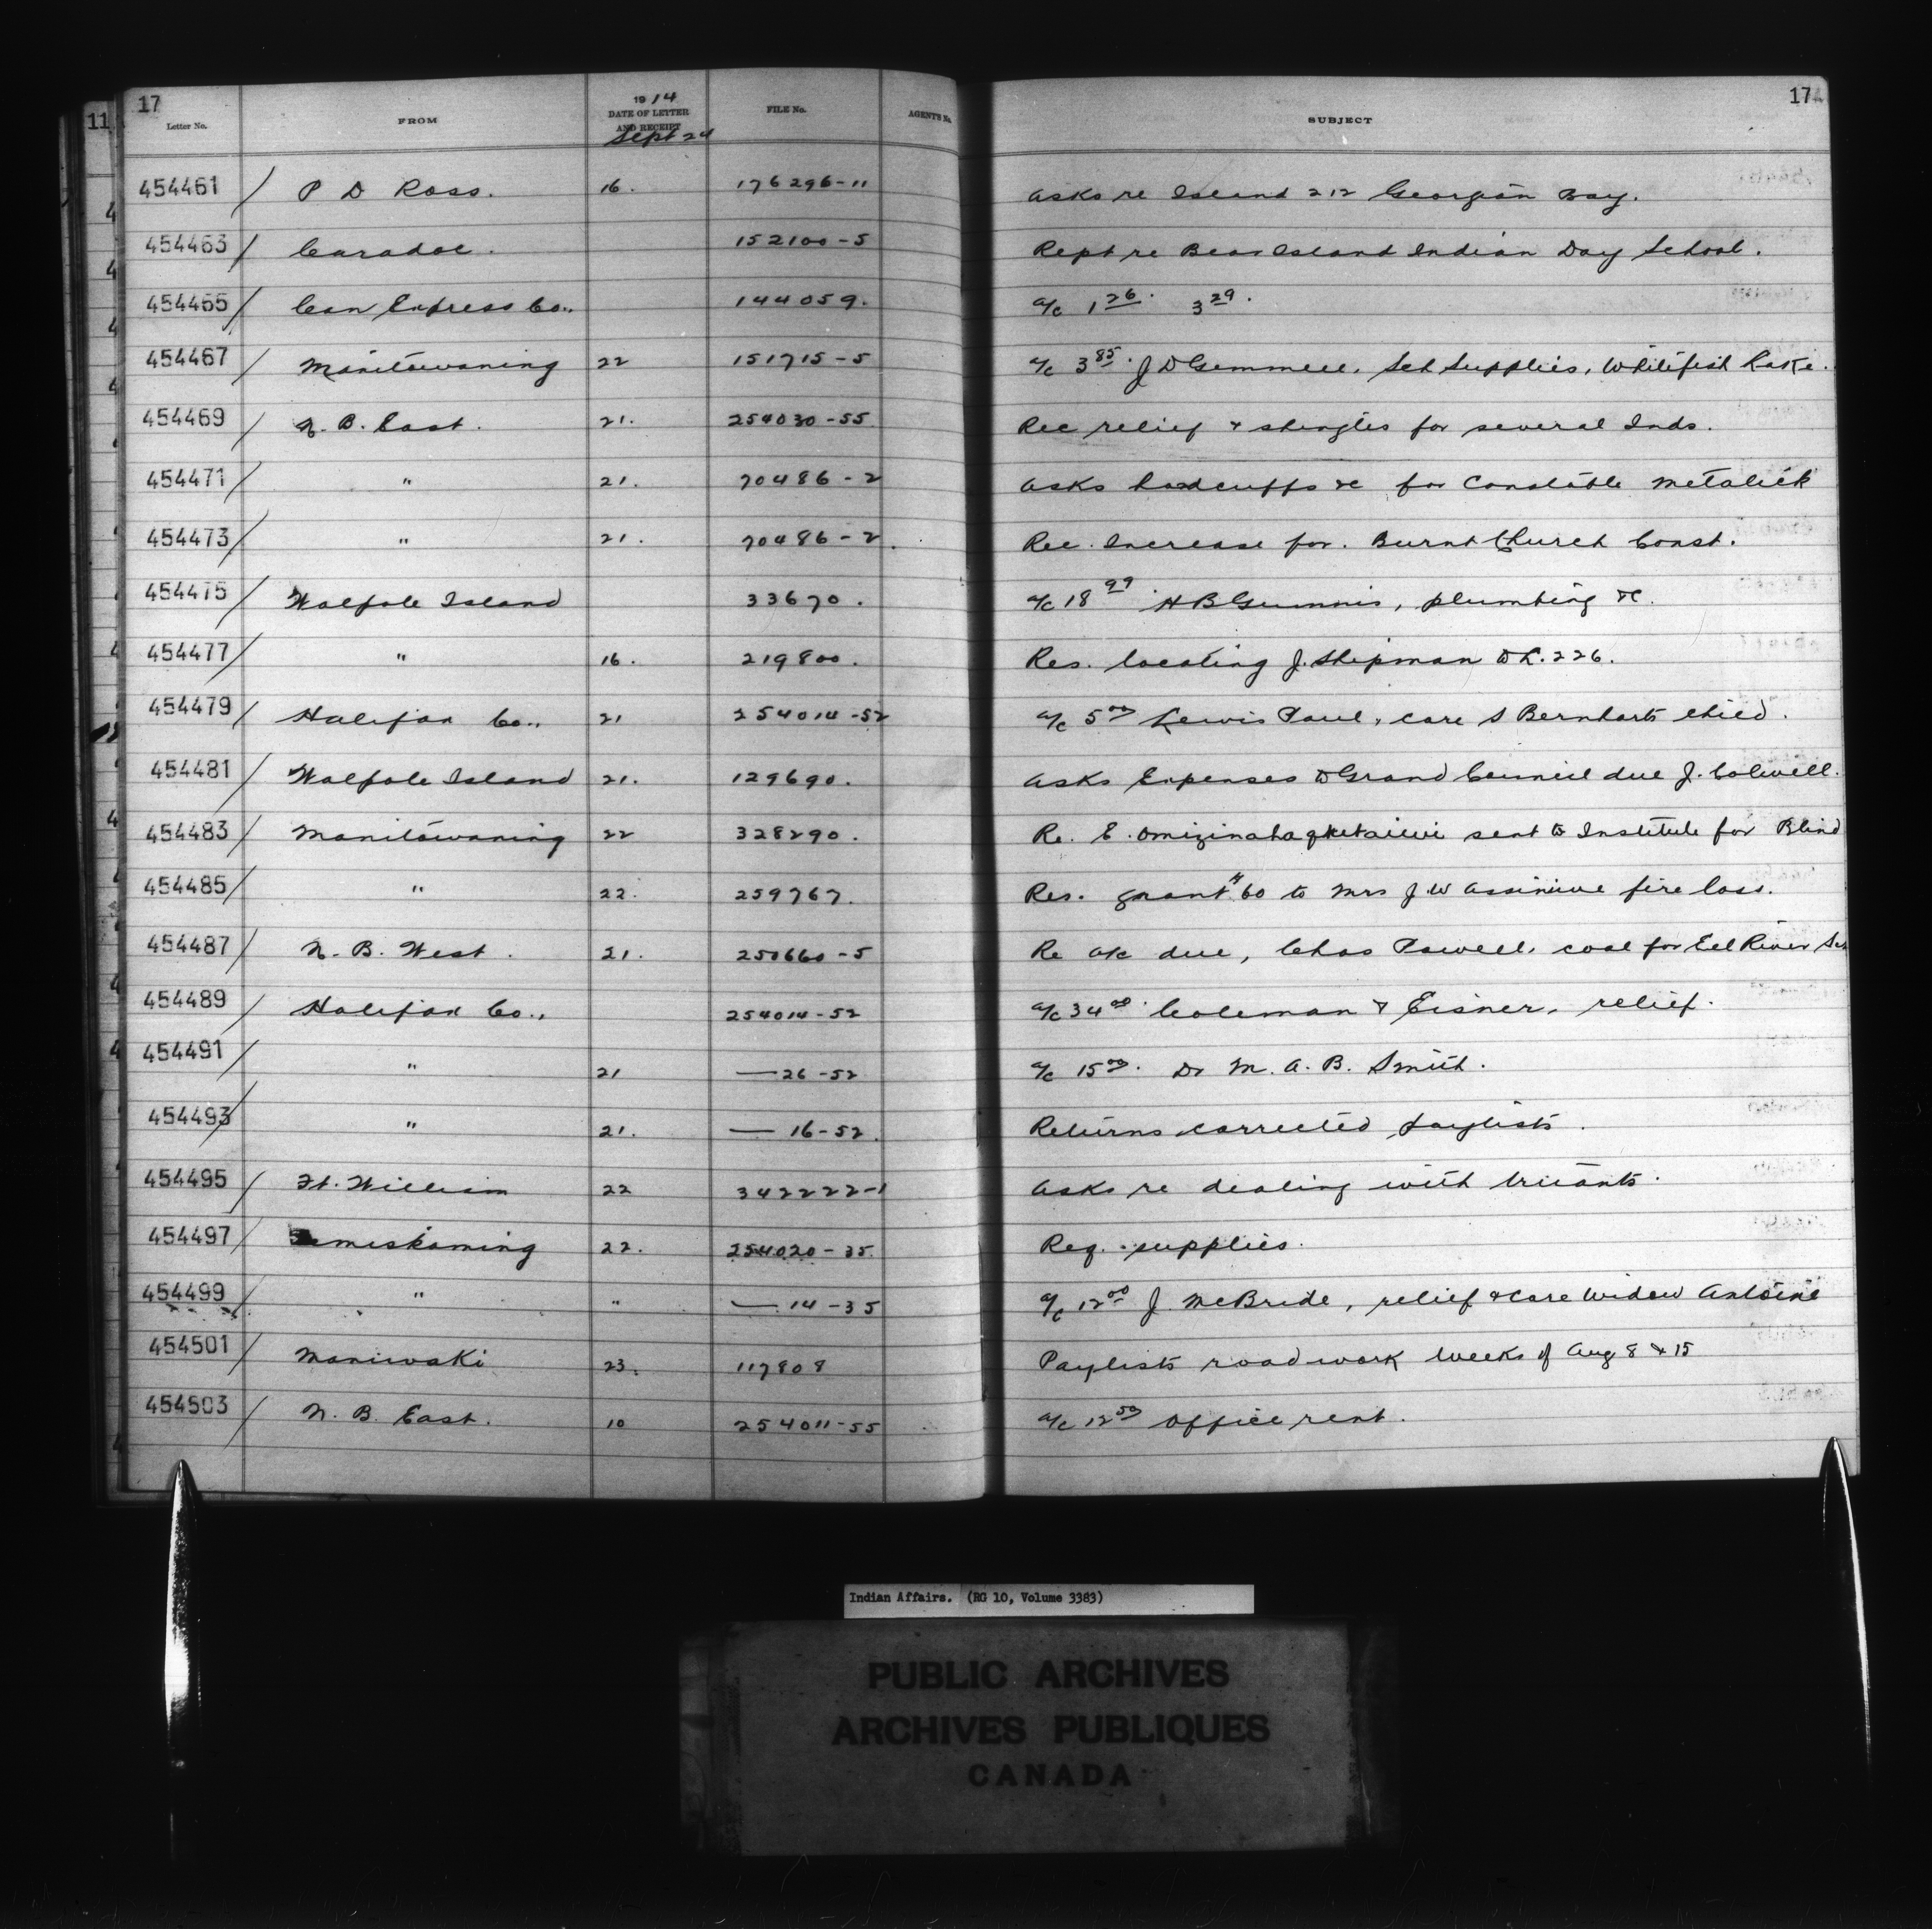 17
17
11
Letter No. FROM 1914 DATE OF LETTER AND RECEIPT Sept 24 FILE No. AGENT'S No. SUBJECT
454461 / P D Ross. 16. 176296-11 Asks re Island 212 Georgian Bay.
454463 / Caradoc. 152100-5 Rept re Bear Island Indian Day School.
454465 / Can Express Co.. 144059. a/c 1 26. 3 29.
454467 / Manitowaning 22 151715-5 a/c 3 85. J D Gemmell. Sch Supplies, Whitefish Lake.
454469 / N. B. East. 21. 254030-55 Rec relief & shingles for several Inds.
454471 / " 21. 70486-2 Asks handcuffs &c for Constable Metalick
454473 / " 21. 70486-2. Rec. Increase for. Burnt Church Const.
454475 / Walpole Island 33670. a/c 18 99 H B Gummis, plumbing &c.
454477 / " 16. 219800. Res. locating J. Shipman to L. 226.
454479 / Halifax Co.. 21 254014-52 a/c 5 00 Lewis Paul, care S Bernharts child.
454481 / Walpole Island 21. 129690. Asks Expenses to Grand Council due J. Colwell.
454483 / Manitowaning 22 328290. Re. E. sent to Institute for Blind
454485 / " 22. 259767. Res. grant $60 to Mrs J. W Assiniwe fire loss.
454487 / N. B. West. 21. 250660-5 Re a/c due, Chas Powell, coal for Eel River Sch
454489 / Halifax Co.. 254014-52 a/c 34 00. Coleman & Eisner, relief.
454491 / " 21 — 26-52 a/c 15 00. Dr M. A. B. Smith.
454493 / " 21. — 16-52. Returns corrected paylists.
454495 / Ft. William 22 342222-1 Asks re dealing with truants.
454497 / Temiskaming 22. 254020-35. Req. supplies.
454499 / " " — 14-35 a/c 12 00 J. McBride, relief & care Widow Antoine
454501 / Maniwaki 23. 117808 Paylists roadwork weeks of Aug 8 & 15
454503 / N. B. East. 10 254011-55 a/c 12 50 Office rent.
Indian Affairs. (RG 10, Volume 3383)
PUBLIC ARCHIVES
ARCHIVES PUBLIQUES
CANADA